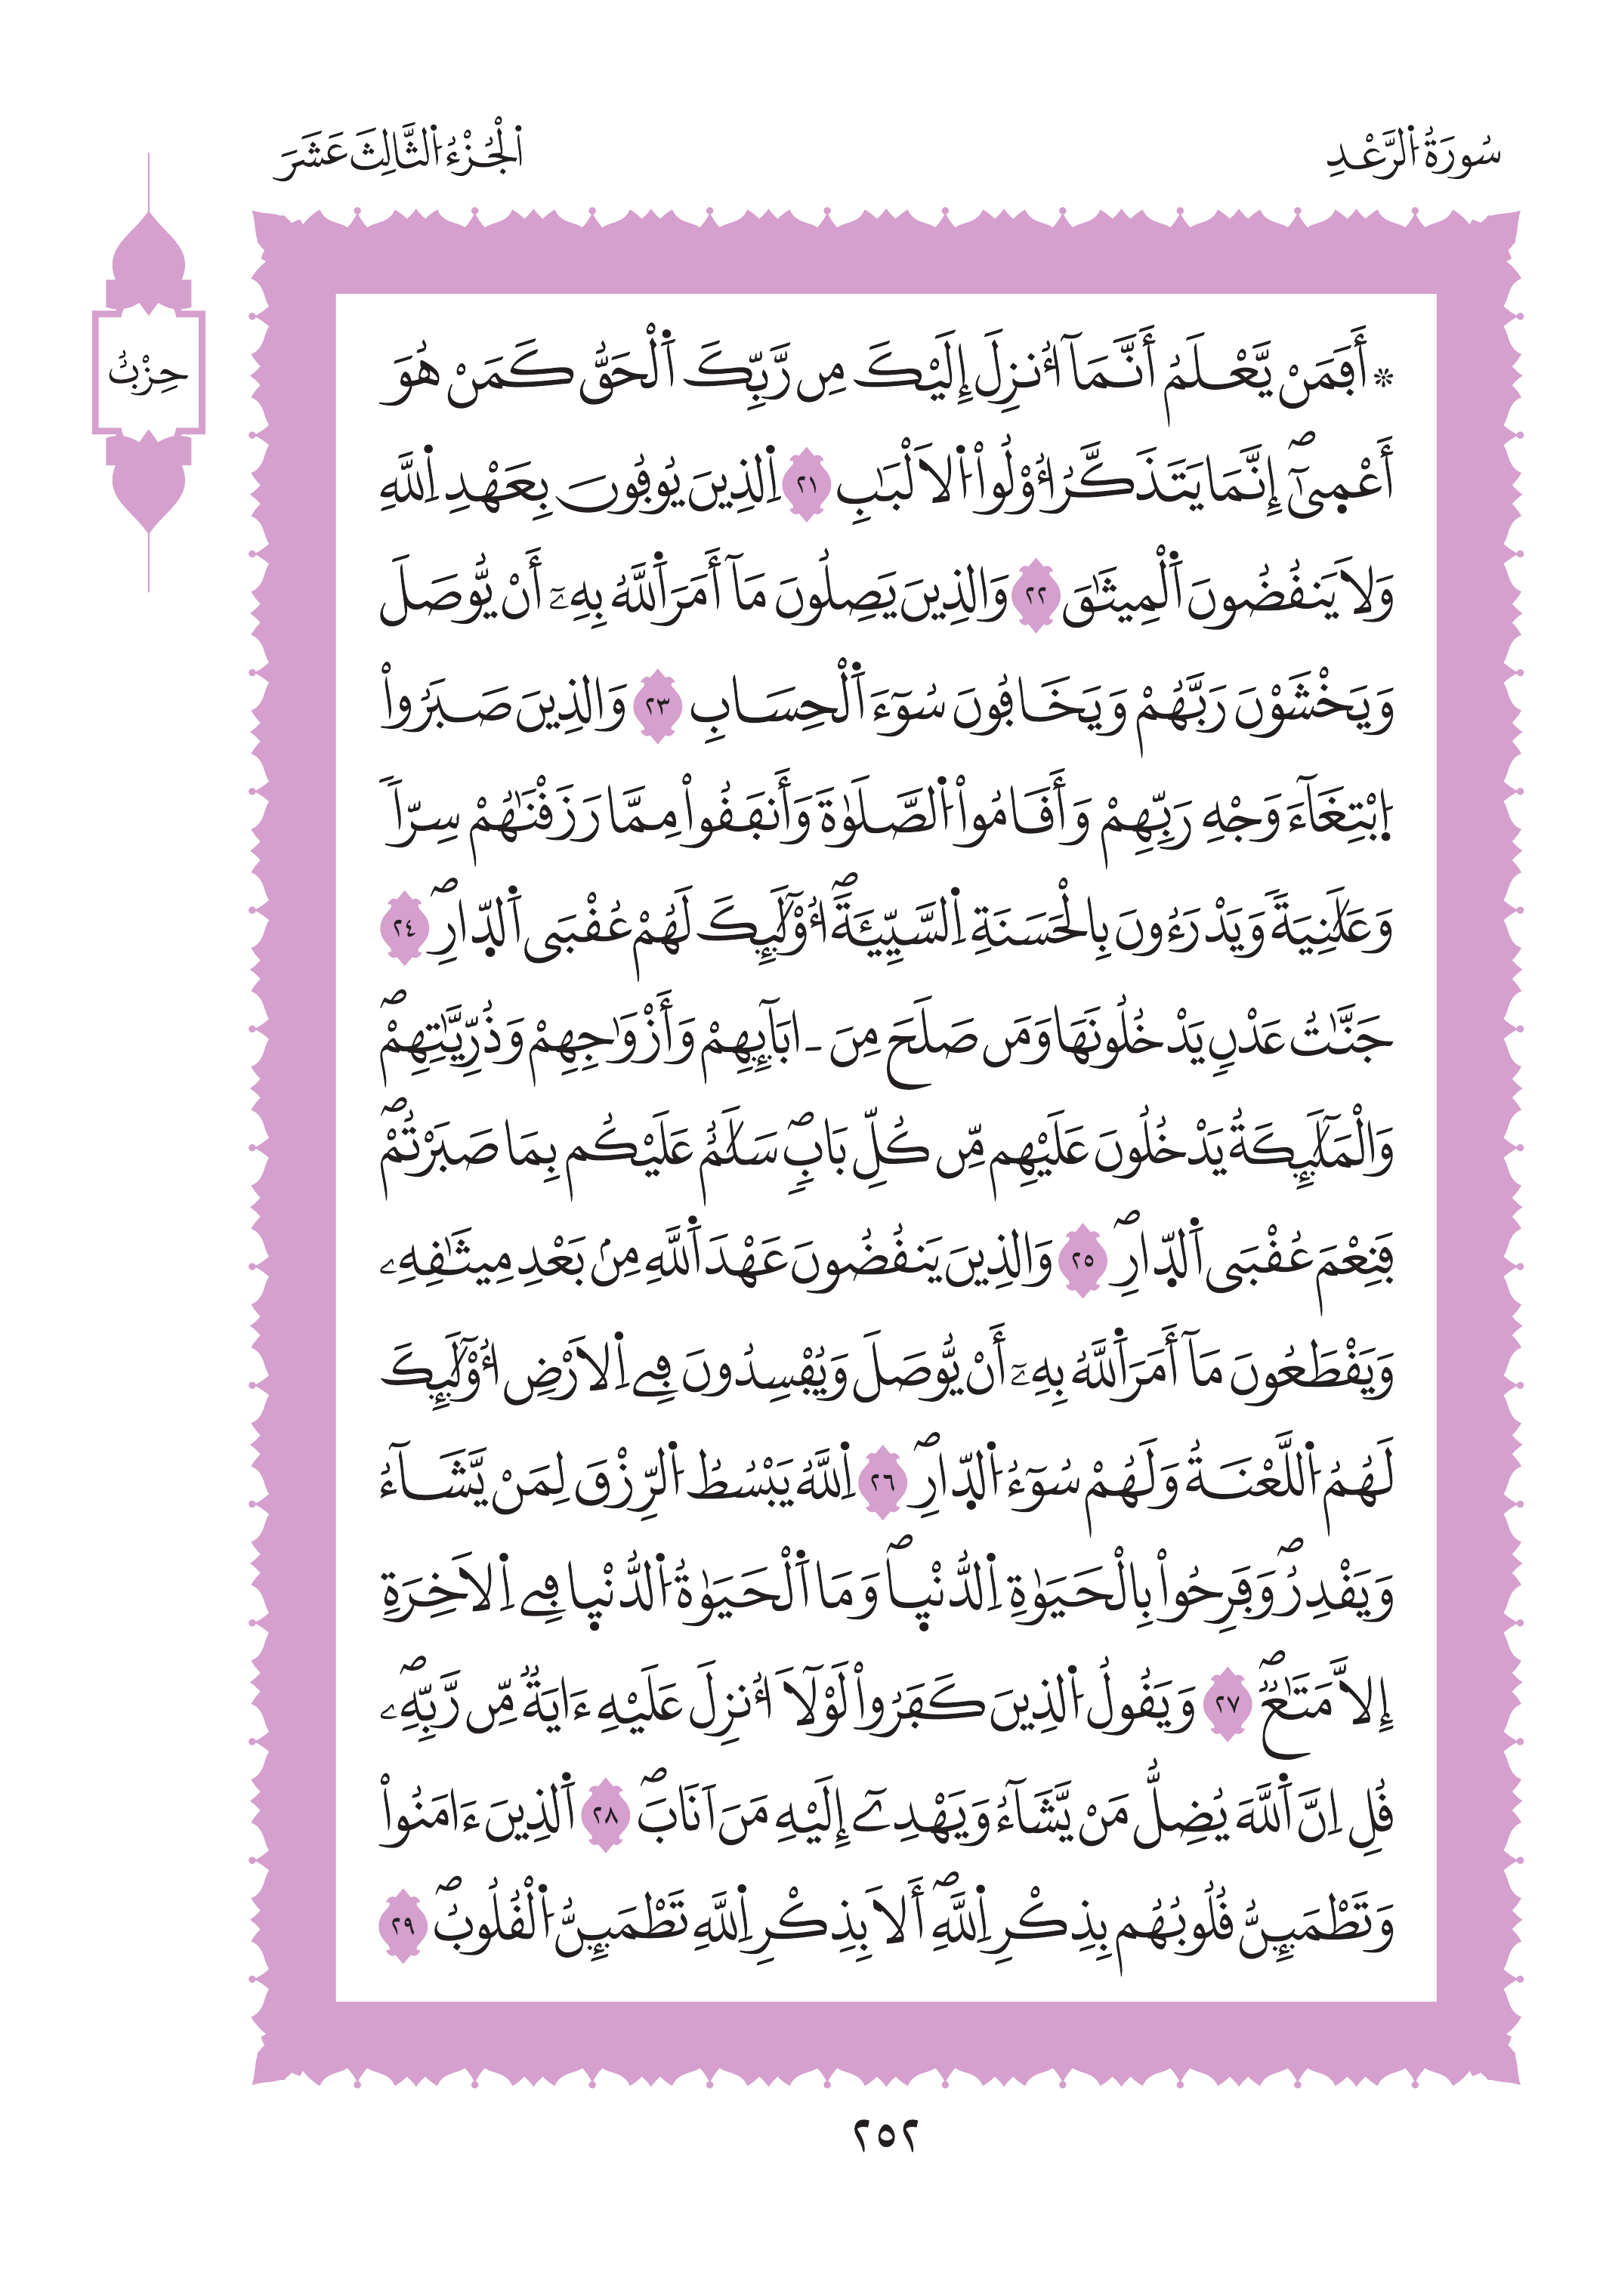 سُورَةُ اُ۬لرَّعْدِ
اَ۬لْجُزْءُ اُ۬لثَّالِثَ عَشَرَ
حِزْبٌ
* أَفَمَنْ يَّعْلَمُ أَنَّمَآ أُنزِلَ إِلَيْكَ مِن رَّبِّكَ اَ۬لْحَقُّ كَمَنْ هُوَ
أَعْم۪ىٰٓۖ إِنَّمَا يَتَذَكَّرُ أُوْلُواْ اُ۬لَالْبَٰبِ ٢١ اِ۬لذِينَ يُوفُونَ بِعَهْدِ اِ۬للَّهِ
وَلَا يَنقُضُونَ اَ۬لْمِيثَٰقَ ٢٢ وَالذِينَ يَصِلُونَ مَآ أَمَرَ اَ۬للَّهُ بِهِۦٓ أَنْ يُّوصَلَ
وَيَخْشَوْنَ رَبَّهُمْ وَيَخَافُونَ سُوٓءَ اَ۬لْحِسَابِ ٢٣ وَالذِينَ صَبَرُواْ
اُ۪بْتِغَآءَ وَجْهِ رَبِّهِمْ وَأَقَامُواْ اُ۬لصَّلَوٰةَ وَأَنفَقُواْ مِمَّا رَزَقْنَٰهُمْ سِرّاٗ
وَعَلَٰنِيَةٗ وَيَدْرَءُونَ بِالْحَسَنَةِ اِ۬لسَّيِّئَةَۖ أُوْلَٰٓئِكَ لَهُمْ عُقْبَى اَ۬لدّ۪ارِۖ ٢٤
جَنَّٰتُ عَدْنٖ يَدْخُلُونَهَا وَمَن صَلَحَ مِنَ ـ ابَآئِهِمْ وَأَزْوَٰجِهِمْ وَذُرِّيَّٰتِهِمْۖ
وَالْمَلَٰٓئِكَةُ يَدْخُلُونَ عَلَيْهِم مِّن كُلِّ بَابٖۖ سَلَٰمٌ عَلَيْكُم بِمَا صَبَرْتُمْۖ
فَنِعْمَ عُقْبَى اَ۬لدّ۪ارِۖ ٢٥ وَالذِينَ يَنقُضُونَ عَهْدَ اَ۬للَّهِ مِنۢ بَعْدِ مِيثَٰقِهِۦ
وَيَقْطَعُونَ مَآ أَمَرَ اَ۬للَّهُ بِهِۦٓ أَنْ يُّوصَلَ وَيُفْسِدُونَ فِے اِ۬لَارْضِ أُوْلَٰٓئِكَ
لَهُمُ اُ۬للَّعْنَةُ وَلَهُمْ سُوٓءُ اُ۬لدّ۪ارِۖ ٢٦ اِ۬للَّهُ يَبْسُطُ اُ۬لرِّزْقَ لِمَنْ يَّشَآءُ
وَيَقْدِرُۖ وَفَرِحُواْ بِالْحَيَوٰةِ اِ۬لدُّنْي۪اۖ وَمَا اَ۬لْحَيَوٰةُ اُ۬لدُّنْي۪ا فِے اِ۬لَاخِرَةِ
إِلَّا مَتَٰعٞۖ ٢٧ وَيَقُولُ اُ۬لذِينَ كَفَرُواْ لَوْلَآ أُنزِلَ عَلَيْهِ ءَايَةٞ مِّن رَّبِّهِۦۖ
قُلِ اِنَّ اَ۬للَّهَ يُضِلُّ مَنْ يَّشَآءُ وَيَهْدِےٓ إِلَيْهِ مَنَ اَنَابَۖ ٢٨ اَ۬لذِينَ ءَامَنُواْ
وَتَطْمَئِنُّ قُلُوبُهُم بِذِكْرِ اِ۬للَّهِۖ أَلَا بِذِكْرِ اِ۬للَّهِ تَطْمَئِنُّ اُ۬لْقُلُوبُۖ ٢٩
٢٥٢